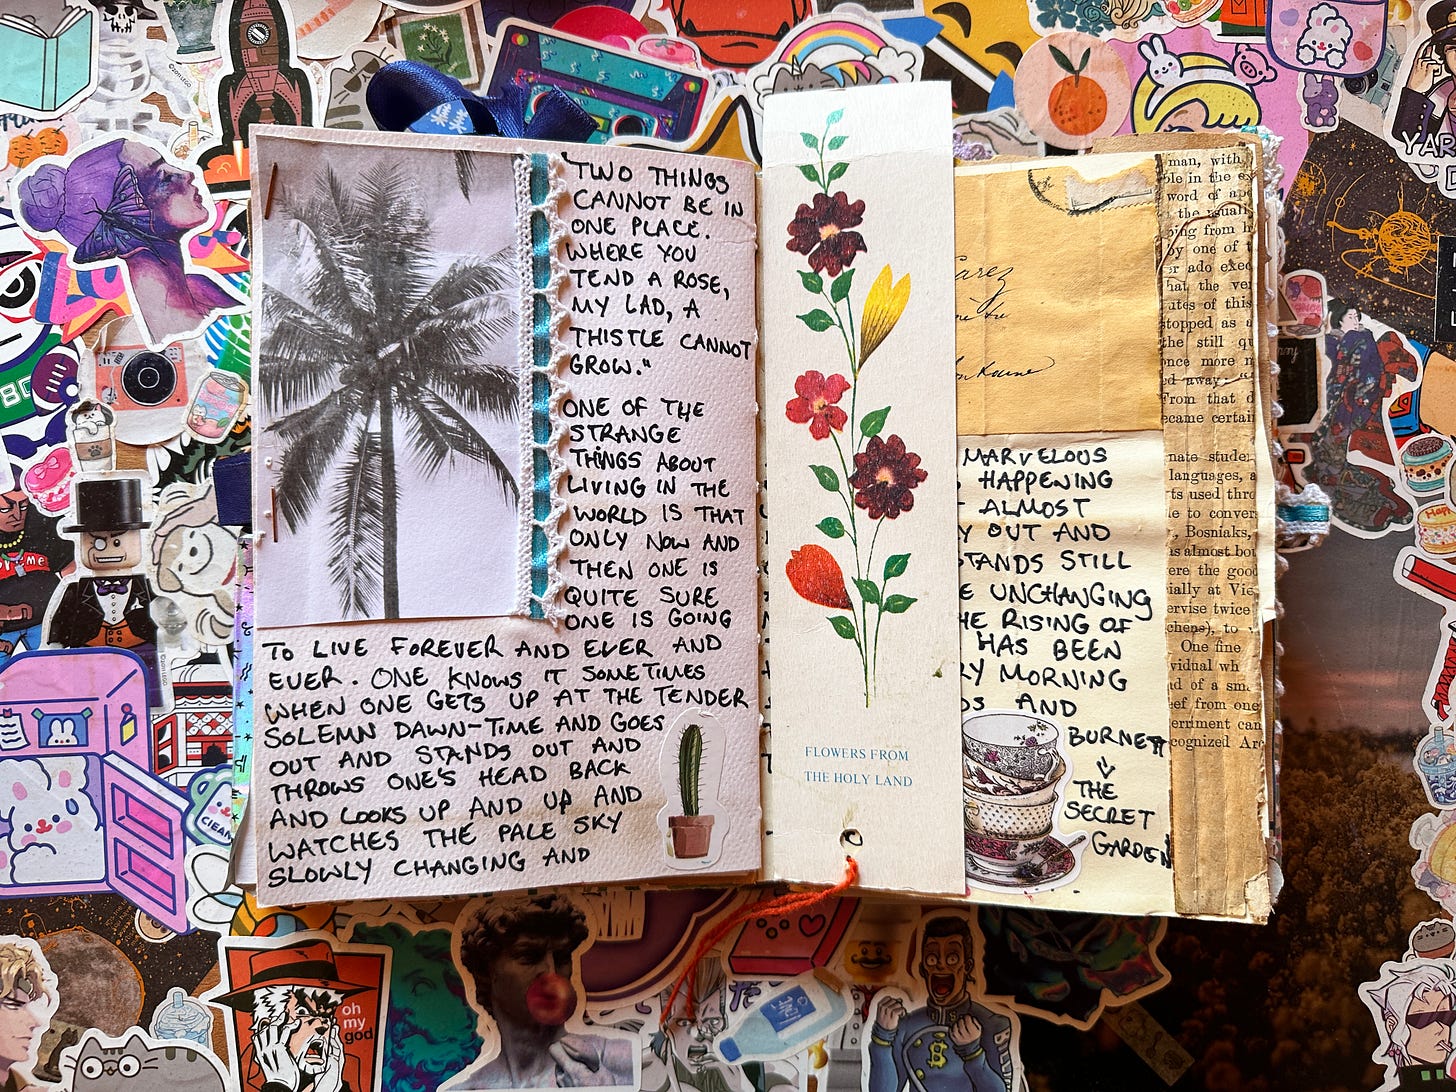 "TWO THINGS
CANNOT BE IN
ONE PLACE.
WHERE YOU
TEND A ROSE,
MY LAD, A
THISTLE CANNOT
GROW."
ONE OF THE
STRANGE
THINGS ABOUT
LIVING IN THE
WORLD IS THAT
ONLY NOW AND
THEN ONE IS
QUITE SURE
ONE IS GOING
TO LIVE FOREVER AND EVER AND
EVER. ONE KNOWS IT SOMETIMES
WHEN ONE GETS UP AT THE TENDER
SOLEMN DAWN-TIME AND GOES
OUT AND STANDS OUT AND
THROWS ONE'S HEAD BACK
AND LOOKS UP AND UP AND
WATCHES THE PALE SKY
SLOWLY CHANGING AND
FLOWERS FROM
THE HOLY LAND
MARVELOUS
HAPPENING
ALMOST
OUT AND
STANDS STILL
UNCHANGING
THE RISING OF
HAS BEEN
MORNING
AND
BURNETT
THE
SECRET
GARDEN
man, with
ble in the
word of
the usual
ping from
by one of
er ado
that the
utes of this
stopped as a
the still
once more
ed away.
From that
ecame certain
nate
languages, a
ts used
le to
Bosniaks,
as almost
ere the good
ially at Vie
ervise twice
chens), to
One fine
vidual wh
d of a
ef from one
erriment can
cognized
oh
my
god
CLEAN
YAR